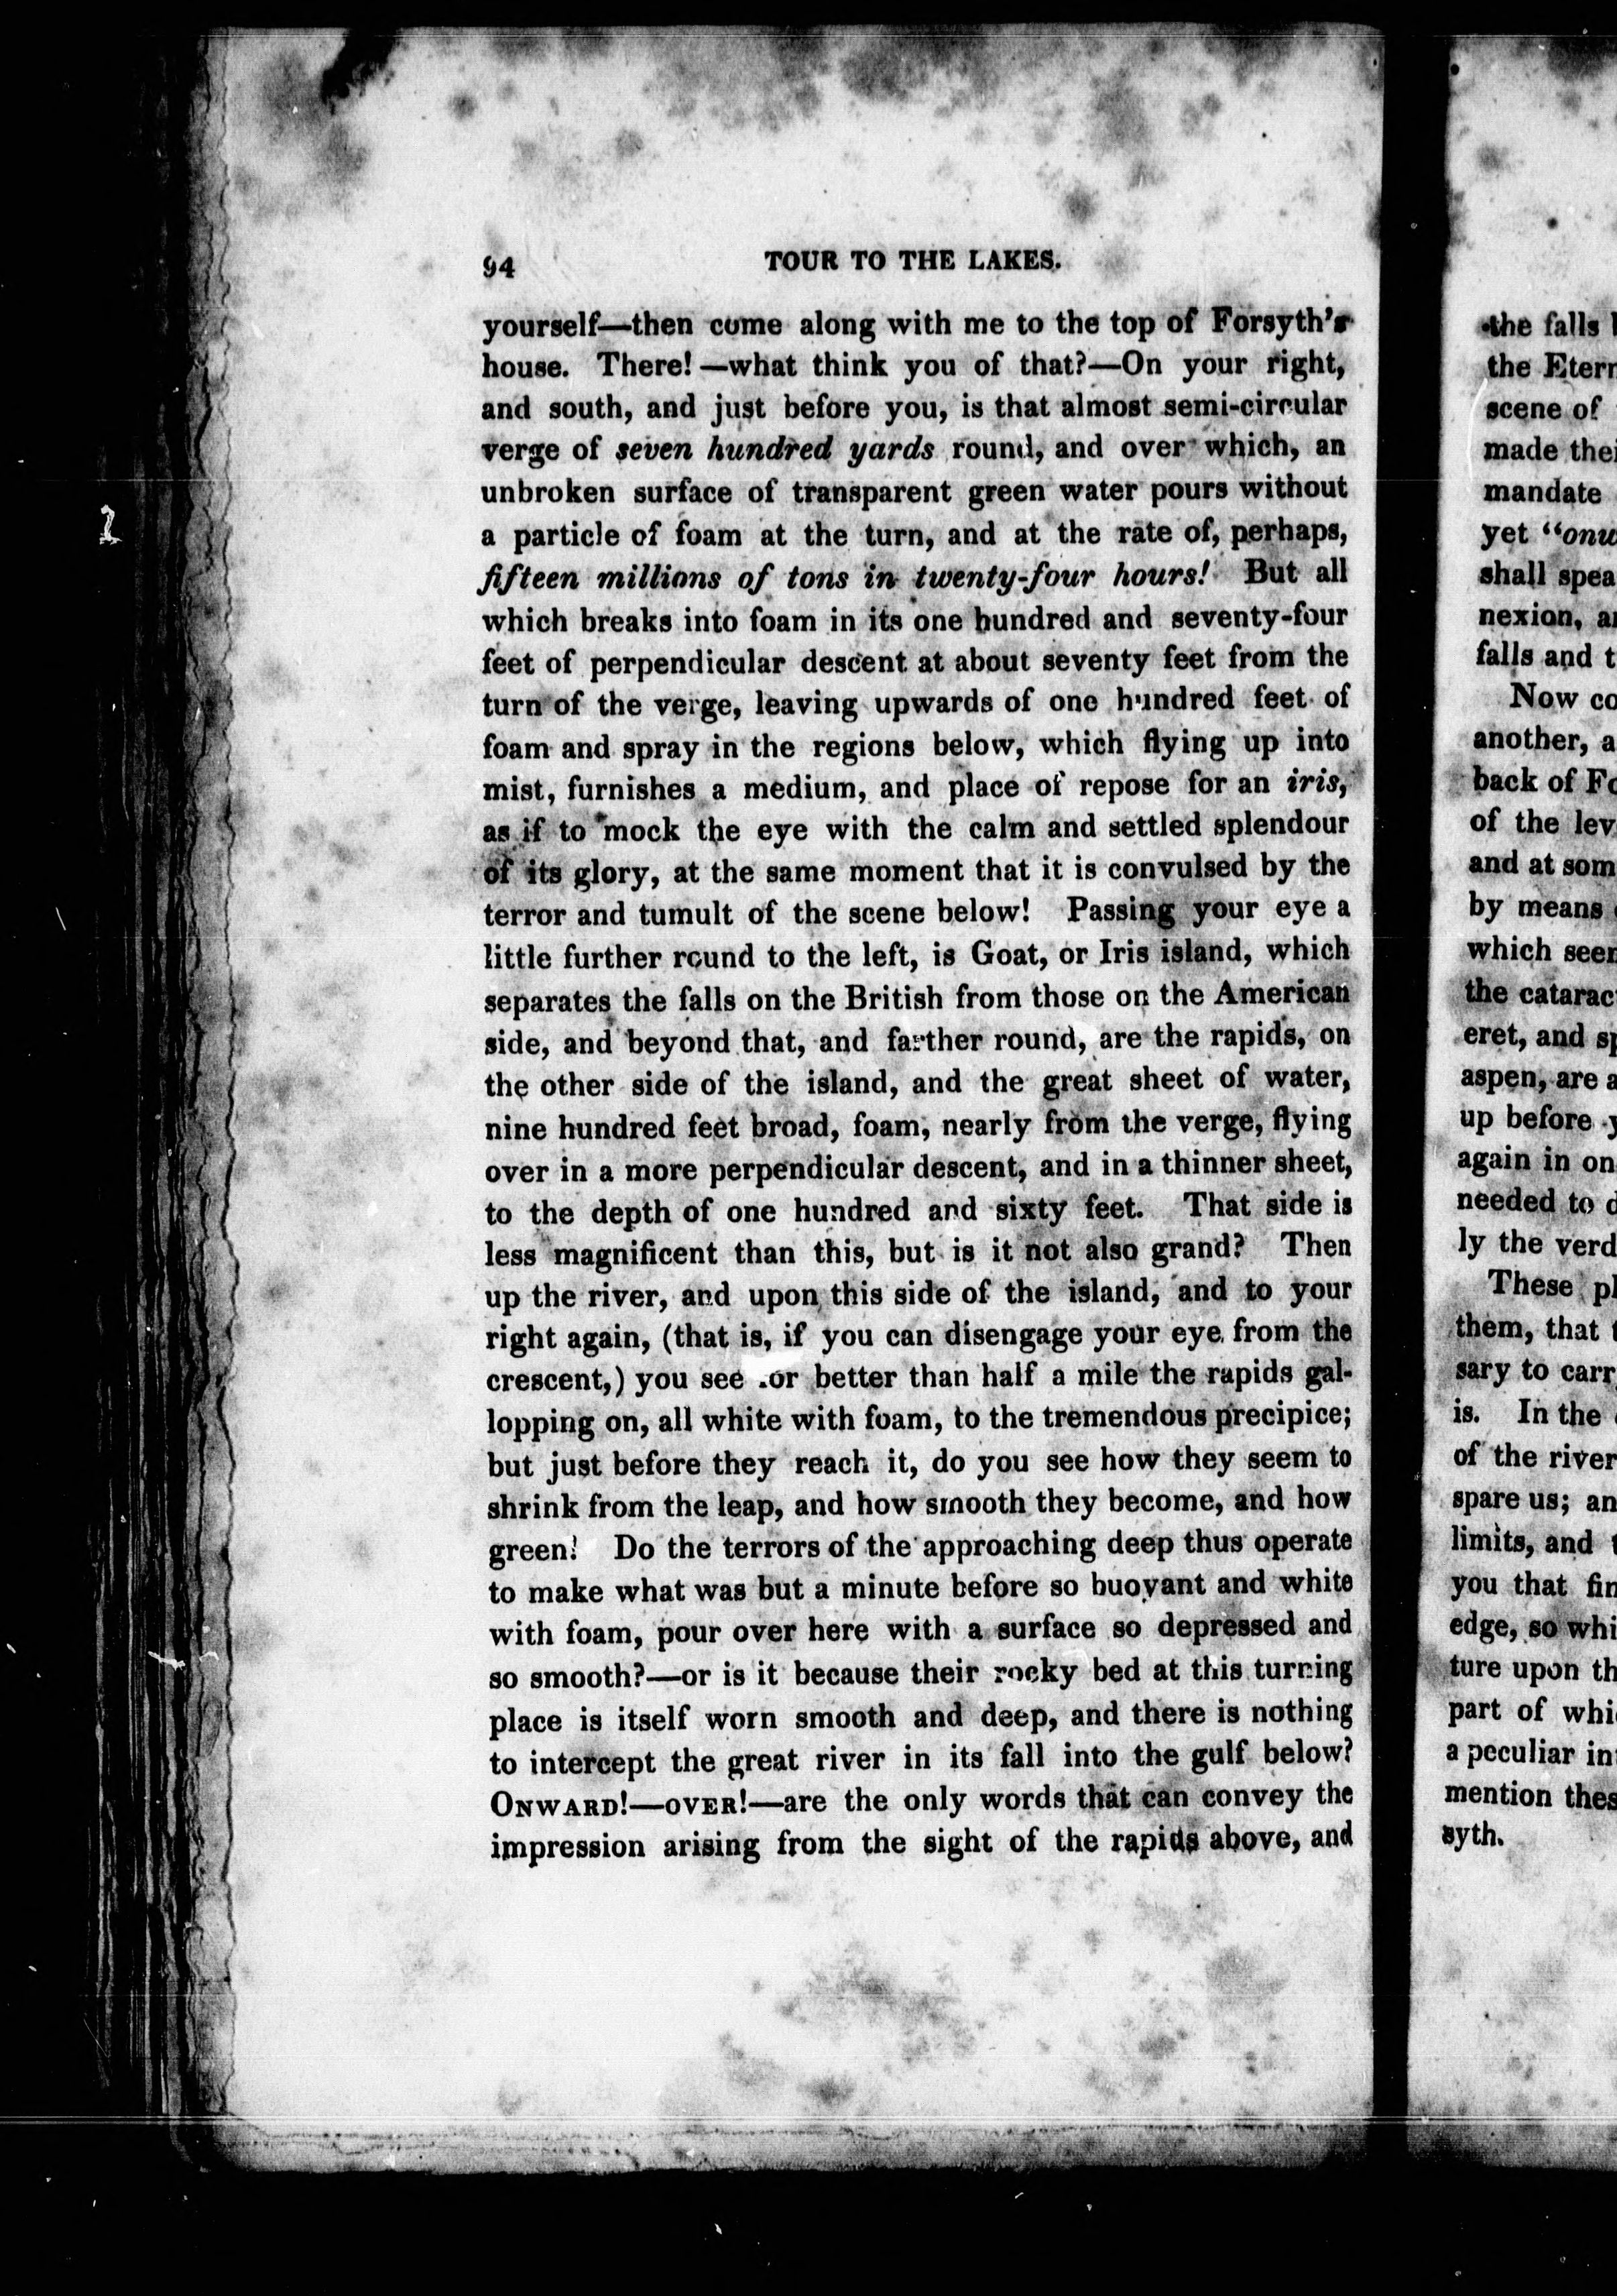 94 TOUR TO THE LAKES.
yourself—then come along with me to the top of Forsyth's
house. There!—what think you of that?—On your right,
and south, and just before you, is that almost semi-circular
verge of seven hundred yards round, and over which, an
unbroken surface of transparent green water pours without
a particle of foam at the turn, and at the rate of, perhaps,
fifteen millions of tons in twenty-four hours! But all
which breaks into foam in its one hundred and seventy-four
feet of perpendicular descent at about seventy feet from the
turn of the verge, leaving upwards of one hundred feet of
foam and spray in the regions below, which flying up into
mist, furnishes a medium, and place of repose for an iris,
as if to mock the eye with the calm and settled splendour
of its glory, at the same moment that it is convulsed by the
terror and tumult of the scene below! Passing your eye a
little further round to the left, is Goat, or Iris island, which
separates the falls on the British from those on the American
side, and beyond that, and farther round, are the rapids, on
the other side of the island, and the great sheet of water,
nine hundred feet broad, foam, nearly from the verge, flying
over in a more perpendicular descent, and in a thinner sheet,
to the depth of one hundred and sixty feet. That side is
less magnificent than this, but is it not also grand? Then
up the river, and upon this side of the island, and to your
right again, (that is, if you can disengage your eye from the
crescent,) you see for better than half a mile the rapids gal-
lopping on, all white with foam, to the tremendous precipice;
but just before they reach it, do you see how they seem to
shrink from the leap, and how smooth they become, and how
green! Do the terrors of the approaching deep thus operate
to make what was but a minute before so buoyant and white
with foam, pour over here with a surface so depressed and
so smooth?—or is it because their rocky bed at this turning
place is itself worn smooth and deep, and there is nothing
to intercept the great river in its fall into the gulf below?
ONWARD!—OVER!—are the only words that can convey the
impression arising from the sight of the rapids above, and
the falls
the
scene of
made
mandate
yet
shall
nexion,
falls and
Now
another,
back of
of the
and at
by means
which
the
eret, and
aspen, are
up before
again in
needed to
ly the
These
them, that
sary to
is. In the
of the river
spare us;
limits, and
you that
edge, so
ture upon
part of
a peculiar
mention
syth.